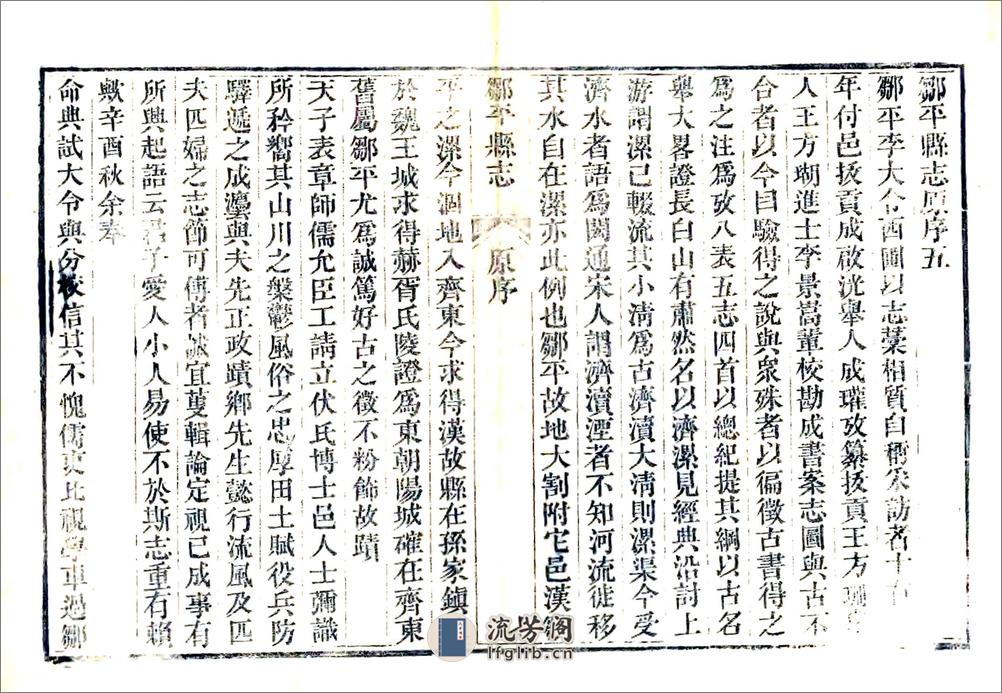 鄒平縣志原序五
鄒平李大令西圃以志藁相質自稱采訪者十有
年付邑拔貢成啟洸舉人成瓘攷纂拔貢王方
人王方瑚進士李景嵩董校勘成書案志圖與古不
合者以今目驗得之說與衆殊者以徧徵古書得之
爲之注爲攷八表五志四首以總紀提其綱以古名
舉大畧證長白山有肅然名以濟漯見經典沿討上
游謂漯已輟流其小淸爲古濟瀆大淸則漯渠今受
濟水者語爲閎通宋人謂濟瀆湮者不知河流徙移
其水自在漯亦此例也鄒平故地大割附它邑漢
鄒平縣志
原序
平之漯今涸地入齊東今求得漢故縣在孫家鎭
於魏王城求得赫胥氏陵證爲東朝陽城確在齊東
舊屬鄒平尤爲誠篤好古之徵不粉飾故蹟
天子表章師儒允臣工請立伏氏博士邑人士彌識
所矜嚮其山川之槃鬱風俗之忠厚田土賦役兵防
驛遞之成灋與夫先正政蹟鄉先生懿行流風及匹
夫匹婦之志節可傳者誠宜蒐輯論定視已成事有
所興起語云君子愛人小人易使不於斯志重有賴
歟辛酉秋余奉
命典試大令與分校信其不愧儒吏比視學車過鄒
流芳阁
lfglib.cn